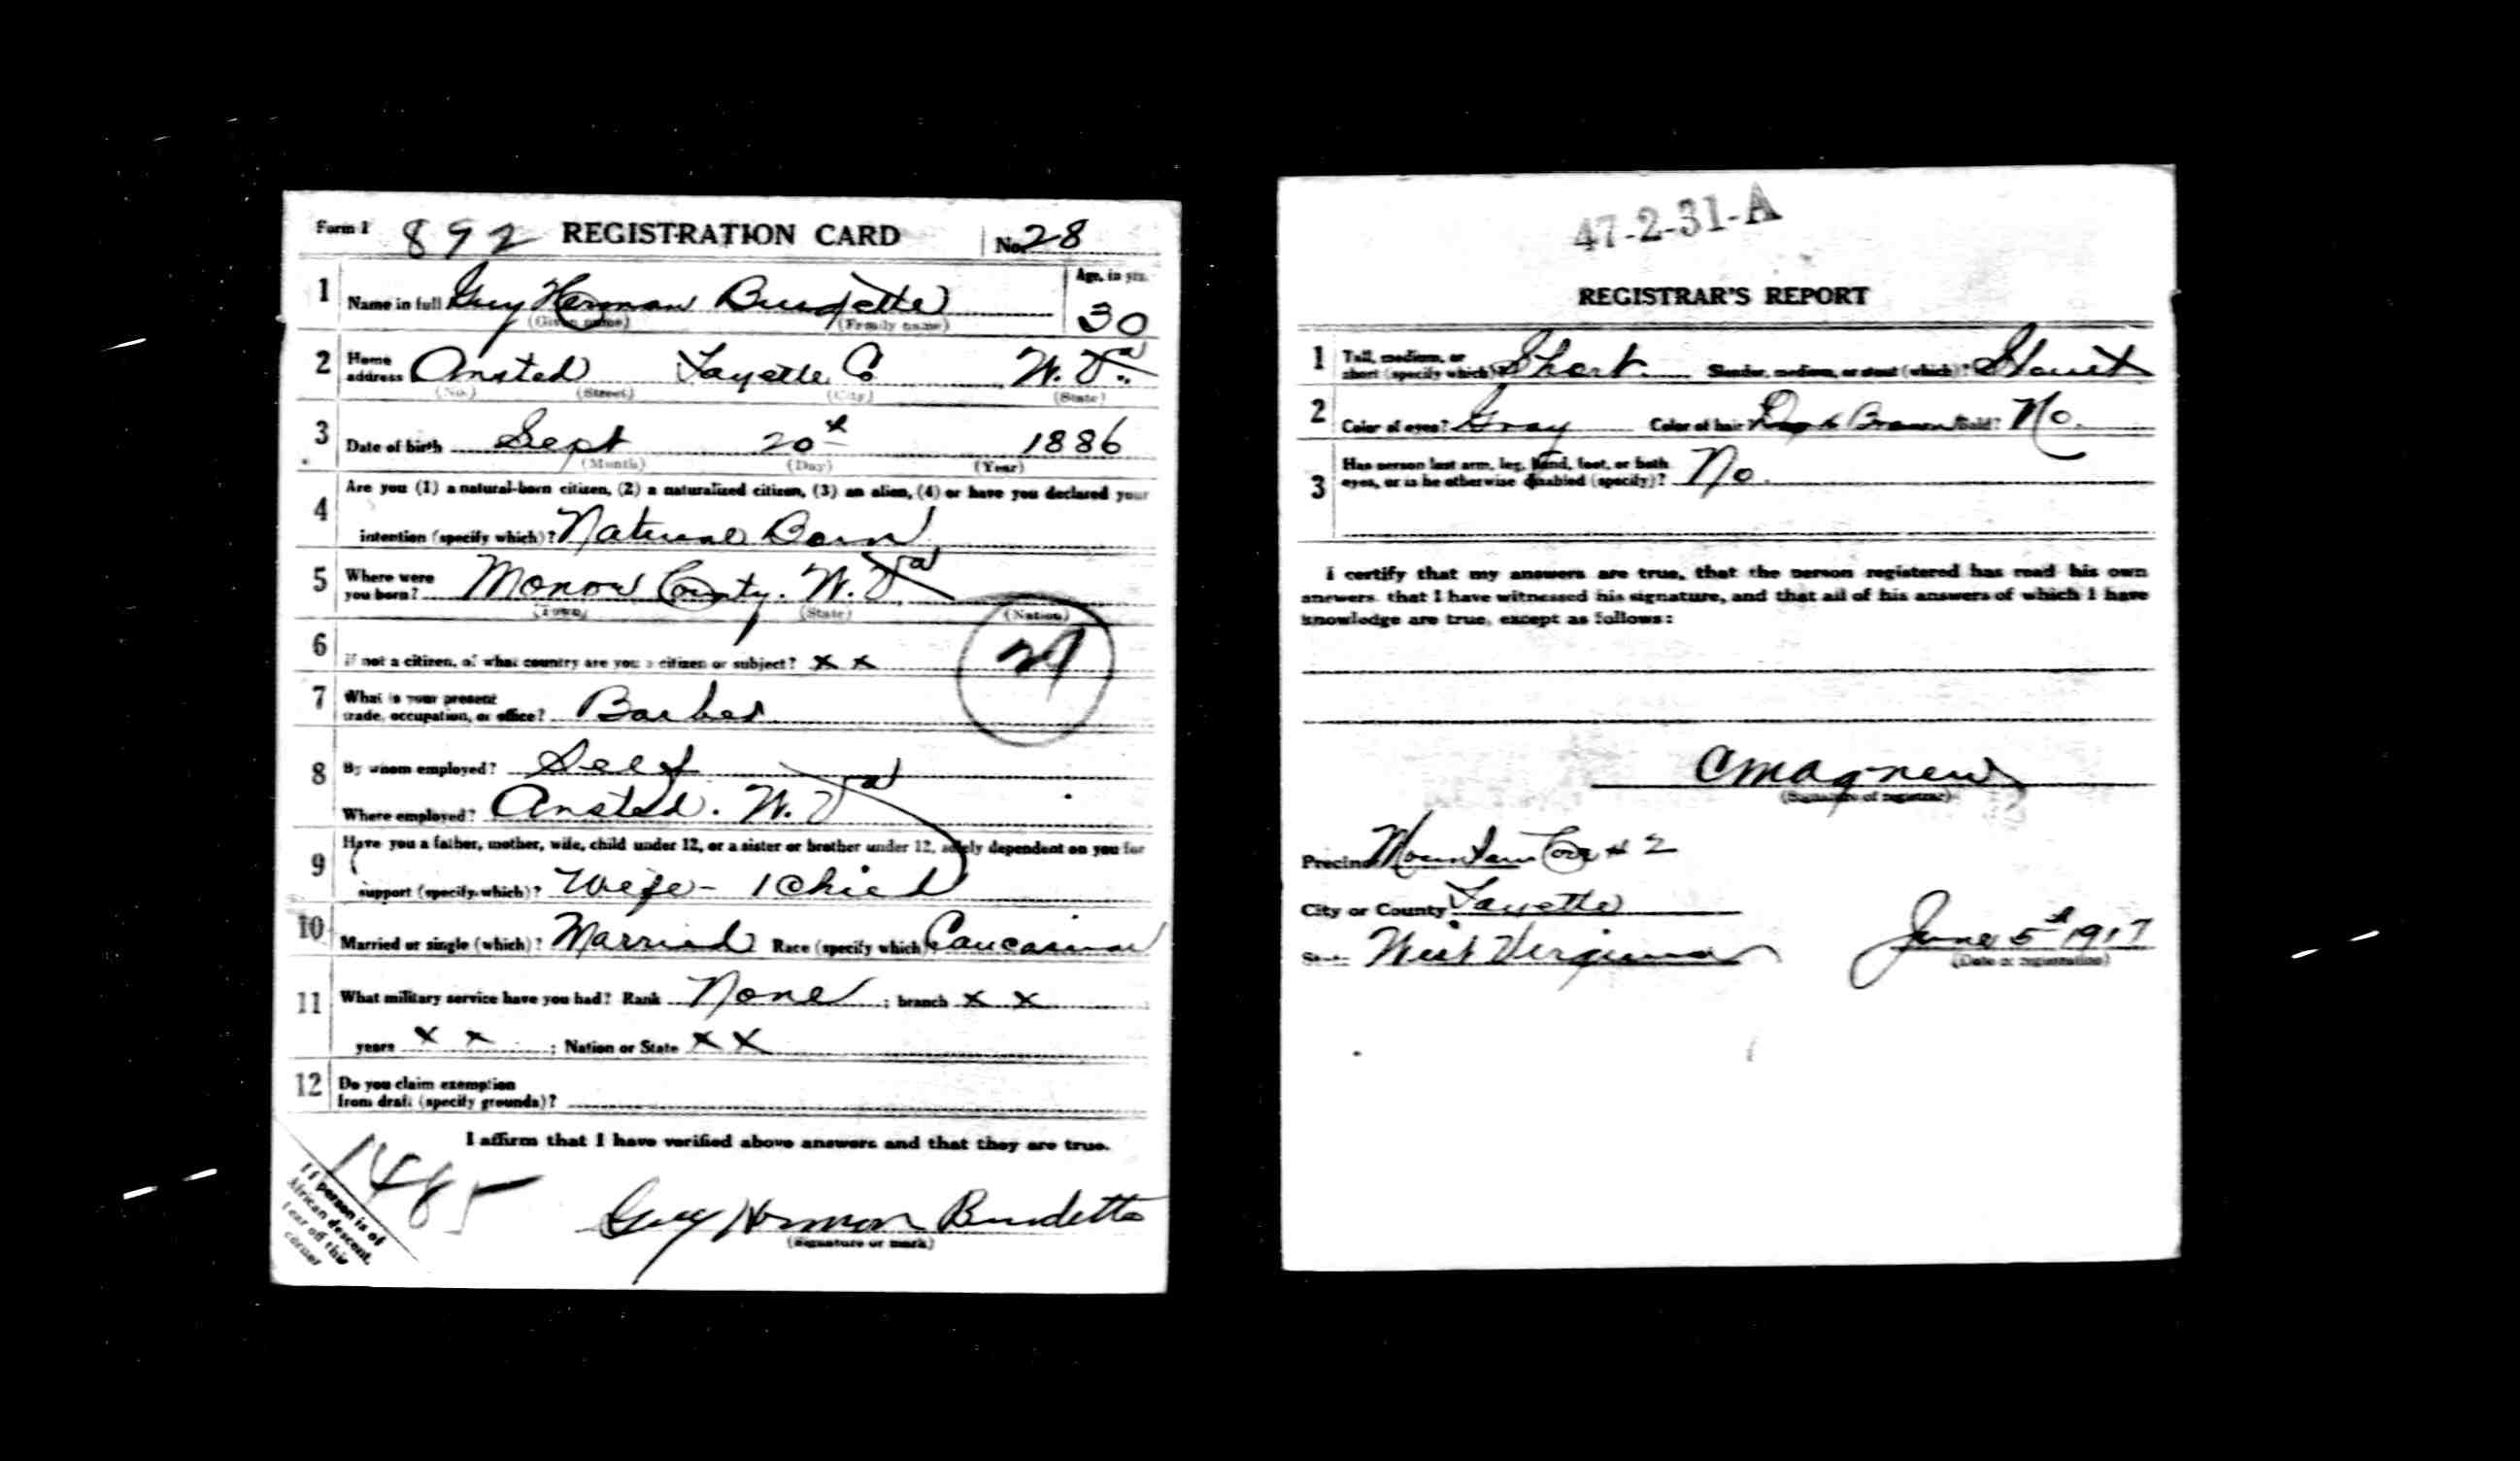 Form 1 892 REGISTRATION CARD No. 28
1 Name in full Guy Herman Burdette Age, in yrs. 30
(Given name) (Family name)
2 Home address Ansted Fayette Co W. Va.
(No.) (Street) (City) (State)
3 Date of birth Sept 20th 1886
(Month) (Day) (Year)
4 Are you (1) a natural-born citizen, (2) a naturalized citizen, (3) an alien, (4) or have you declared your
intention (specify which)? Natural Born
5 Where were you born? Monroe County. W. Va
(Town) (State) (Nation)
6 If not a citizen, of what country are you a citizen or subject? x x
29
7 What is your present trade, occupation, or office? Barber
8 By whom employed? Self
Where employed? Ansted. W. Va
9 Have you a father, mother, wife, child under 12, or a sister or brother under 12, solely dependent on you for
support (specify which)? Wife - 1 Child
10 Married or single (which)? Married Race (specify which) Caucasian
11 What military service have you had? Rank None ; branch x x
years x x ; Nation or State x x
12 Do you claim exemption
from draft (specify grounds)?
I affirm that I have verified above answers and that they are true.
1485
If person is of
African descent,
tear off this
corner
Guy Herman Burdette
(Signature or mark)
47-2-31-A
REGISTRAR'S REPORT
1 Tall, medium, or short (specify which)? Short. Slender, medium, or stout (which)? Stout
2 Color of eyes? Gray Color of hair? Dark Brown Bald? No.
3 Has person lost arm, leg, hand, foot, or both
eyes, or is he otherwise disabled (specify)? No.
I certify that my answers are true, that the person registered has read his own
answers, that I have witnessed his signature, and that all of his answers of which I have
knowledge are true, except as follows:
C M Agnew
(Signature of registrar)
Precinct Mountain Cove # 2
City or County Fayette
State West Virginia June 5th 1917
(Date of registration)